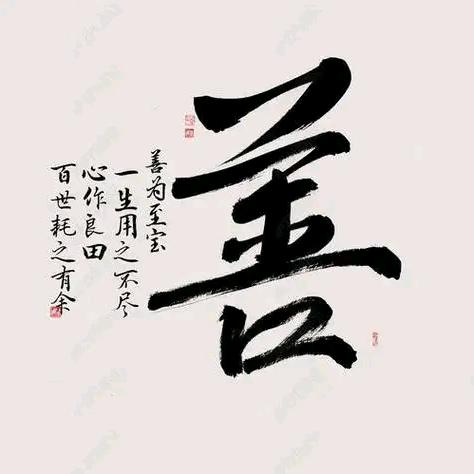 善
善为至宝
一生用之不尽
心作良田
百世耗之有余